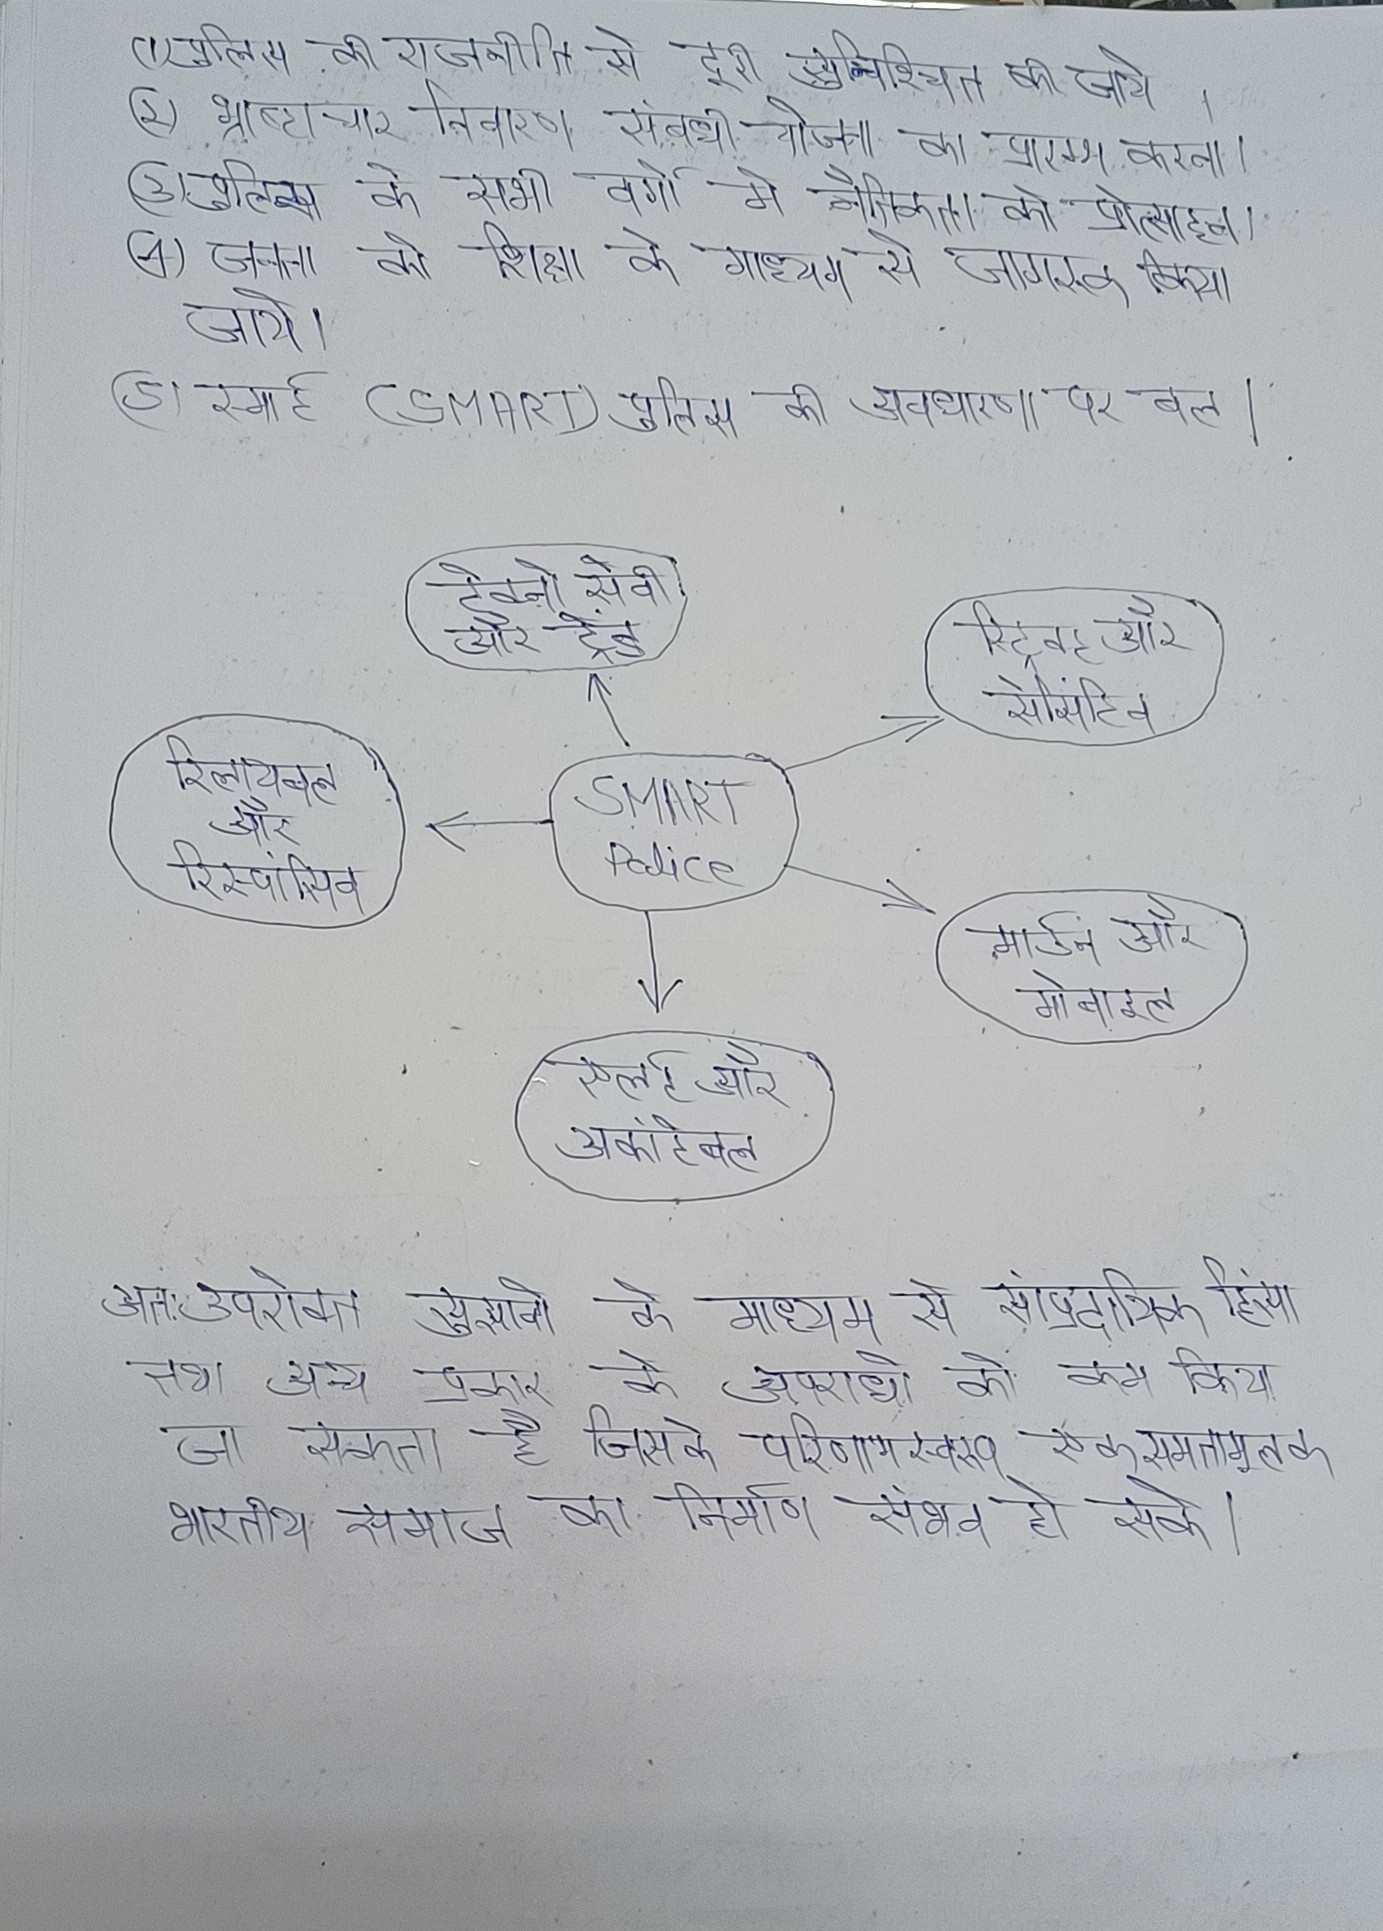 (1) पुलिस की राजनीति से दूरी सुनिश्चित की जाये ।
(2) भ्राष्टाचार निवारण संबधी योजना का प्रारम्भ करना।
(3) पुलिस के सभी वर्गो मे नैतिकता को प्रोत्साहन।
(4) जनता को शिक्षा के माध्यम से जागरूक किया
जाये।
(5) स्मार्ट (SMART) पुलिस की अवधारणा पर बल।
टेक्नो सेवी
और ट्रेंड
स्ट्रिक्ट और
सेंसिटिव
रिलायबल
और
रिस्पांसिव
SMART
Police
मार्डन और
मोबाइल
एलर्ट और
अकांटेबल
अतः उपरोक्त सुझावो के माध्यम से सांप्रदायिक हिंसा
तथा अन्य प्रकार के अपराधो को कम किया
जा सकता है जिसके परिणामस्वरूप एक समतामूलक
भारतीय समाज का निर्माण संभव हो सके।